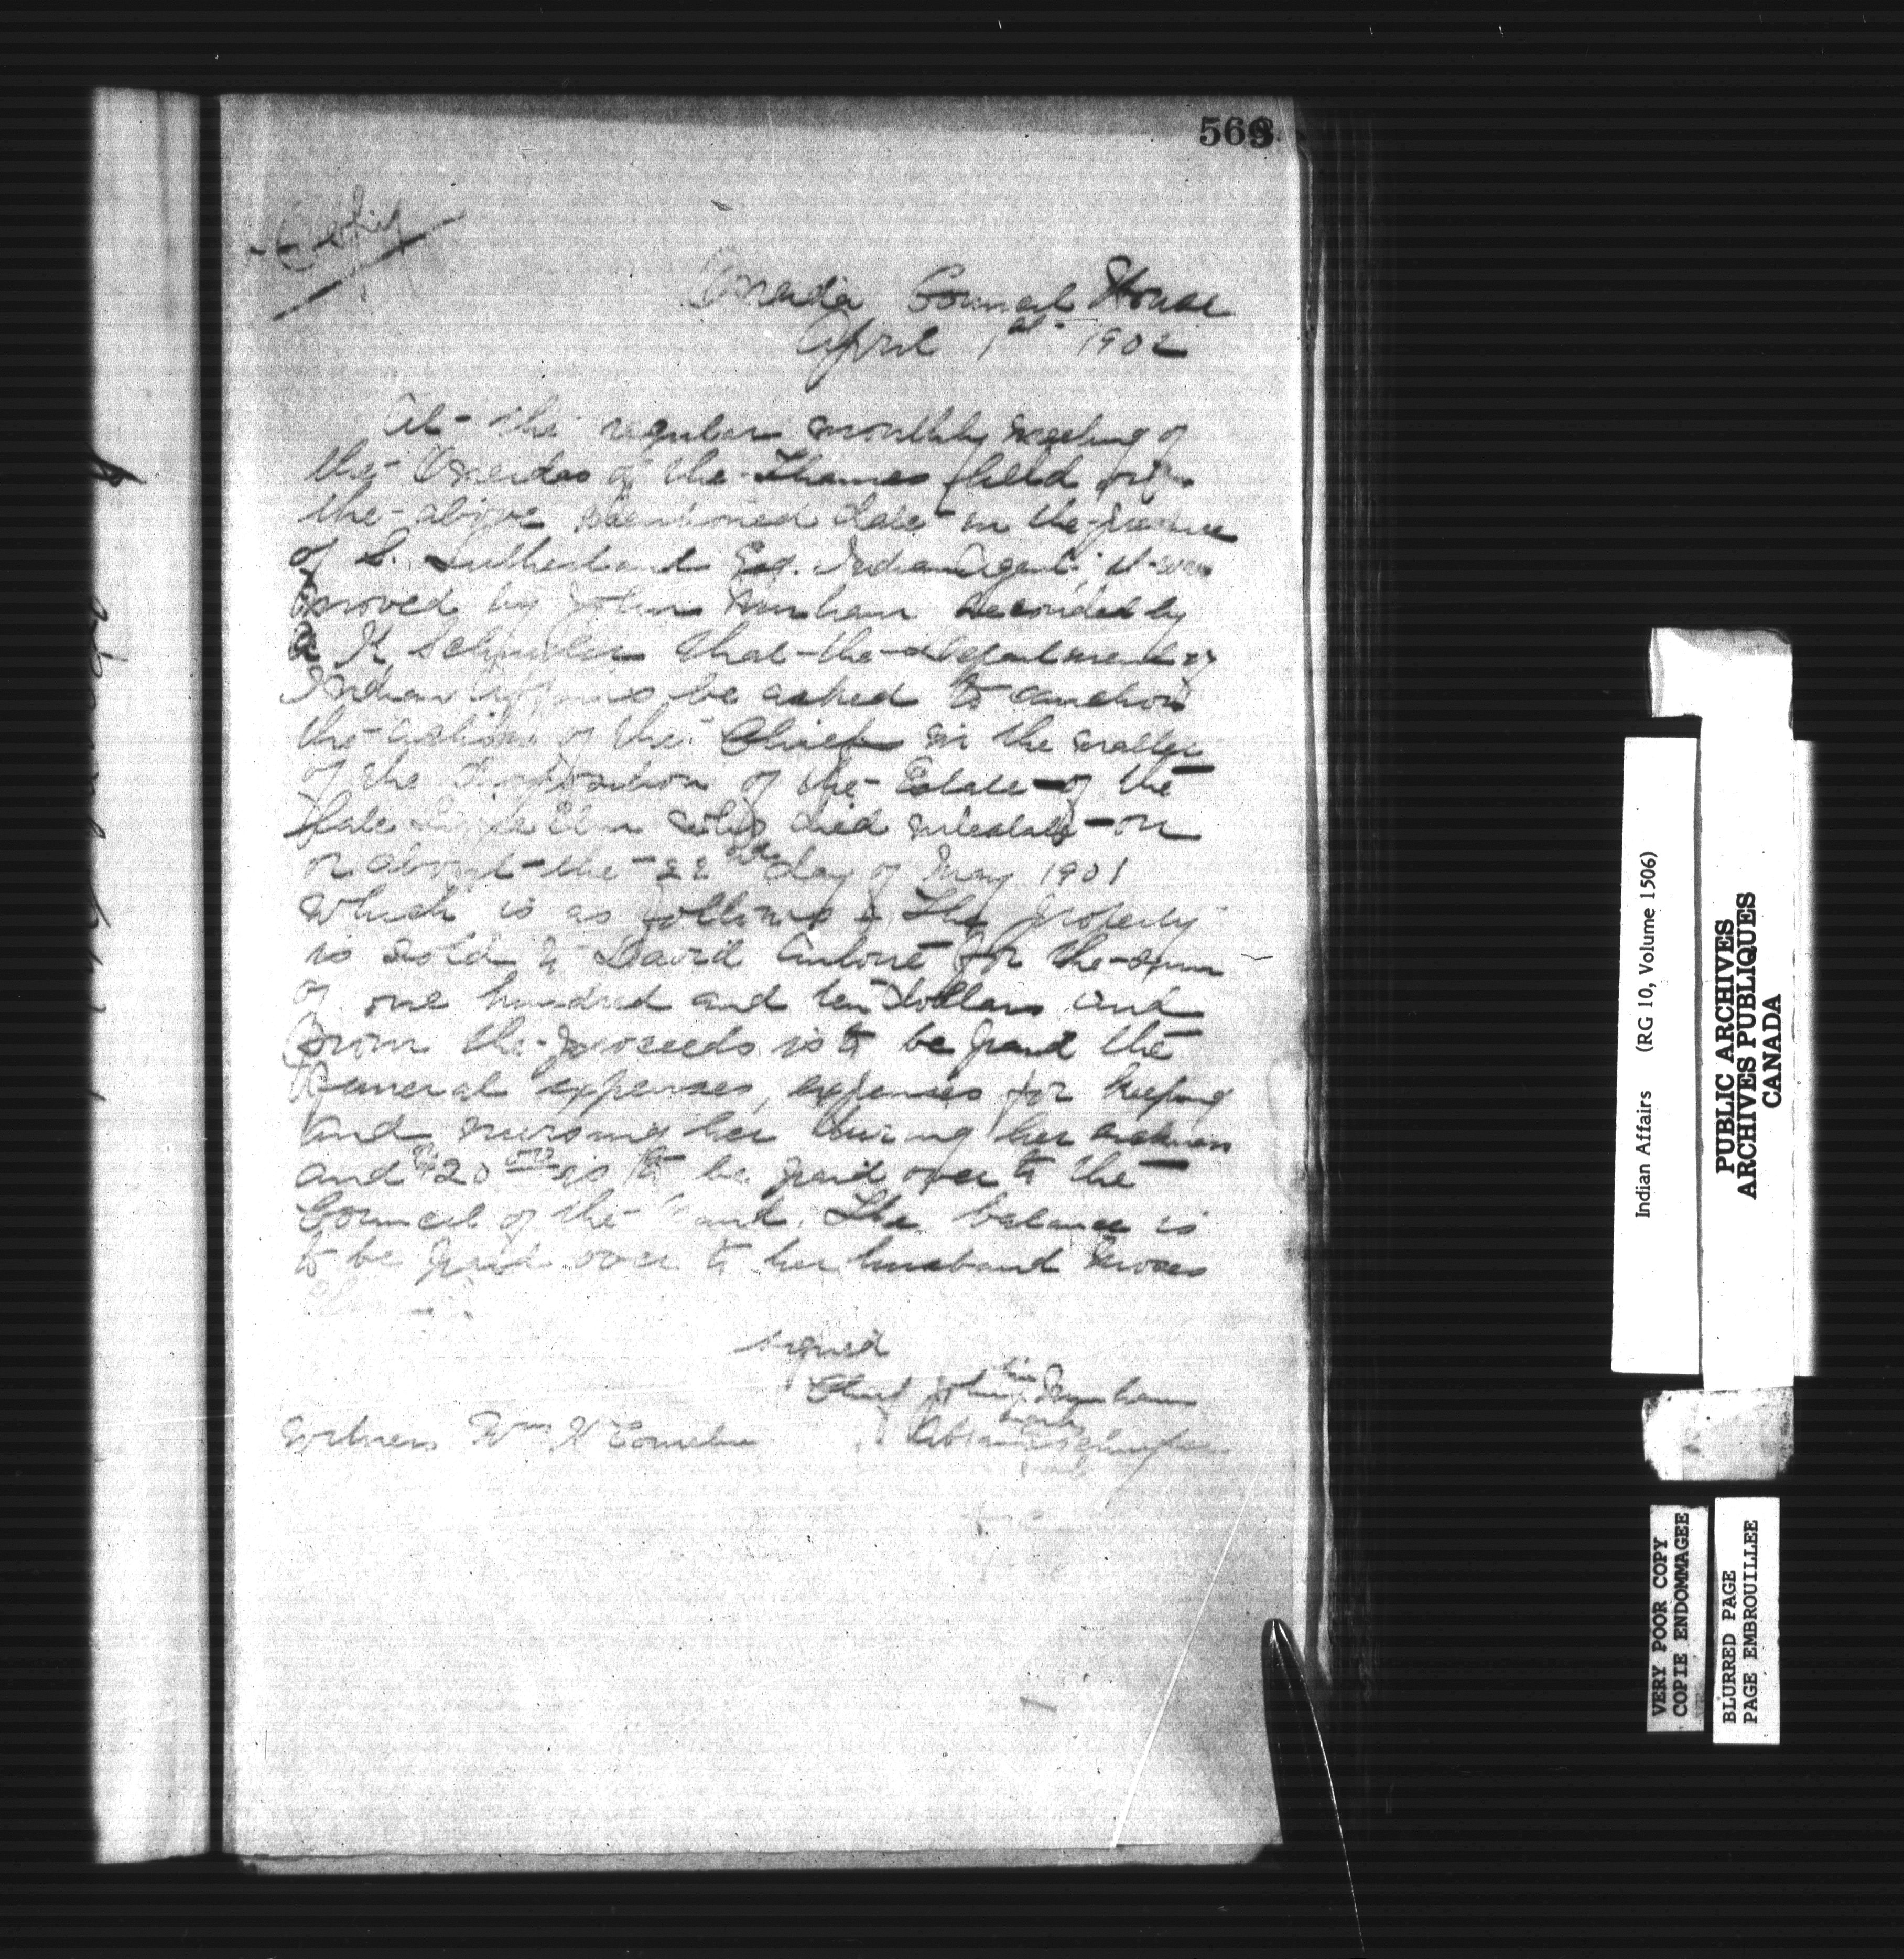 Copy
Oneida Council House
April 1st 1902
At the regular monthly meeting of
the Oneidas of the Thames held on
the above mentioned date in the presence
of S. Sutherland Esq. Indian Agent, it was
moved by John Nynham seconded by
A Schuyler that the department of
Indian Affairs be asked to sanction
the action of the Chiefs in the matter
of the disposition of the Estate of the
late Elm who died intestate on
or about the 22nd day of May 1901
which is as follows The property
is sold to David Antone for the sum
of one hundred and ten dollars and
from the proceeds is to be paid the
Funeral expenses, expenses for keeping
and nursing her during her sickness
and $20 00 is to be paid over to the
Council of the Band. The balance is
to be paid over to her husband Moses
Elm
signed
Chief John his Nynham
mark
Witness Wm H Cornelius Abram Schuyler
Indian Affairs (RG 10, Volume 1506)
PUBLIC ARCHIVES
ARCHIVES PUBLIQUES
CANADA
VERY POOR COPY
COPIE ENDOMMAGEE
BLURRED PAGE
PAGE EMBROUILLEE